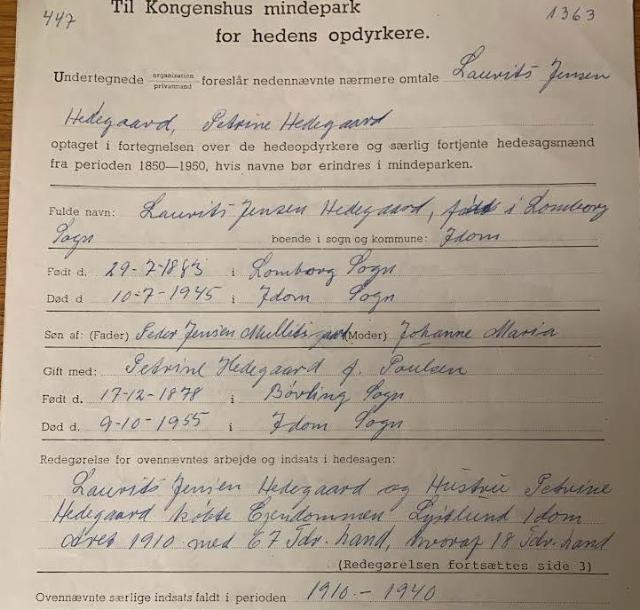 447
1363
Til Kongenshus mindepark
for hedens opdyrkere.
Undertegnede organisation privatmand foreslår nedennævnte nærmere omtale Laurits Jensen
Hedegaard, Petrine Hedegaard
optaget i fortegnelsen over de hedeopdyrkere og særlig fortjente hedesagsmænd
fra perioden 1850—1950, hvis navne bør erindres i mindeparken.
Fulde navn: Laurits Jensen Hedegaard, født i Lomborg
Sogn boende i sogn og kommune: Idom
Født d. 29-7-1883 i Lomborg Sogn
Død d 10-7-1945 i Idom Sogn
Søn af: (Fader) Peder Jensen (Moder) Johanne Maria
Gift med: Petrine Hedegaard f. Poulsen
Født d. 17-12-1878 i Bøvling Sogn
Død d. 9-10-1955 i Idom Sogn
Redegørelse for ovennævntes arbejde og indsats i hedesagen:
Laurits Jensen Hedegaard og Hustru Petrine
Hedegaard købte Ejendommen Idom
året 1910 med 67 Tdr. Land, hvoraf 18 Tdr. Land
(Redegørelsen fortsættes side 3)
Ovennævnte særlige indsats faldt i perioden 1910.- 1940